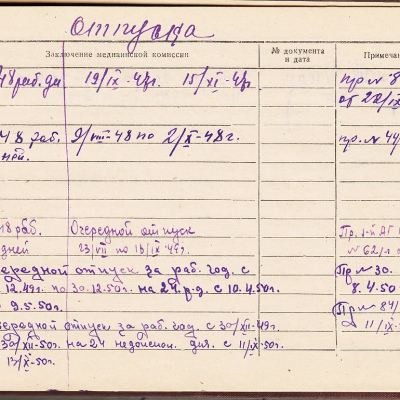 Отпуска
Заключение медицинской комиссии
№ документа и дата
Примечан
48 раб. дн 19/IX-47г. 15/XI-47г. пр № 8
от 22/IX
48 раб. 9/VIII-48 по 2/X-48г. пр. № 44
ней.
48 раб. Очередной отпуск Пр.
дней 23/VII по 13/IX 49г. № 62/л
очередной отпуск за раб. год. с Пр № 30.
12.49г. по 30.12.50г. на 24 р.д. с 10.4.50г. 8.4.50
9.5.50г. Пр № 84/
чередной отпуск за раб. год с 30/XII-49г. 11/IX-
30/XII-50г. на 24 дня. с 11/IX-50г.
13/X-50г.